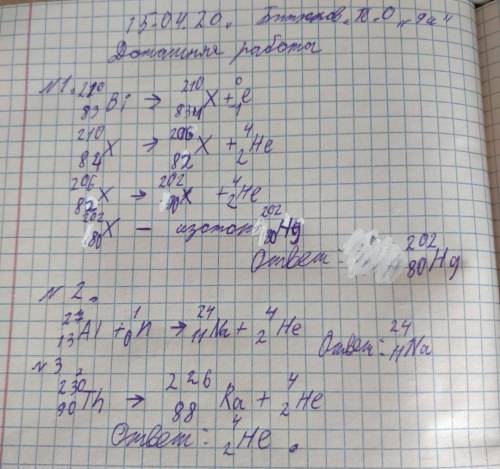 15.04.20. Битюков. Ю. О „9а"
Домашняя работа
№1. ²¹⁰₈₃Bi → ²¹⁰₈₄X + ⁰₋₁e
²¹⁰₈₄X → ²⁰⁶₈₂X + ⁴₂He
²⁰⁶₈₂X → ²⁰²₈₀X + ⁴₂He
²⁰²₈₀X – изотоп ²⁰²₈₀Hg
Ответ: ²⁰²₈₀Hg
№ 2.
²⁷₁₃Al + ¹₀n → ²⁴₁₁Na + ⁴₂He
Ответ: ²⁴₁₁Na
№ 3.
²³⁰₉₀Th → ²²⁶₈₈Ra + ⁴₂He
Ответ: ⁴₂He.